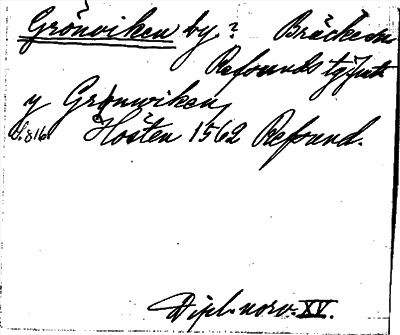 Grönviken by? Bräcke sn
Refsunds tgjut
y Gronwiken,
S. 816. Hösten 1562 Refsund.
Dipl. norv. XV.